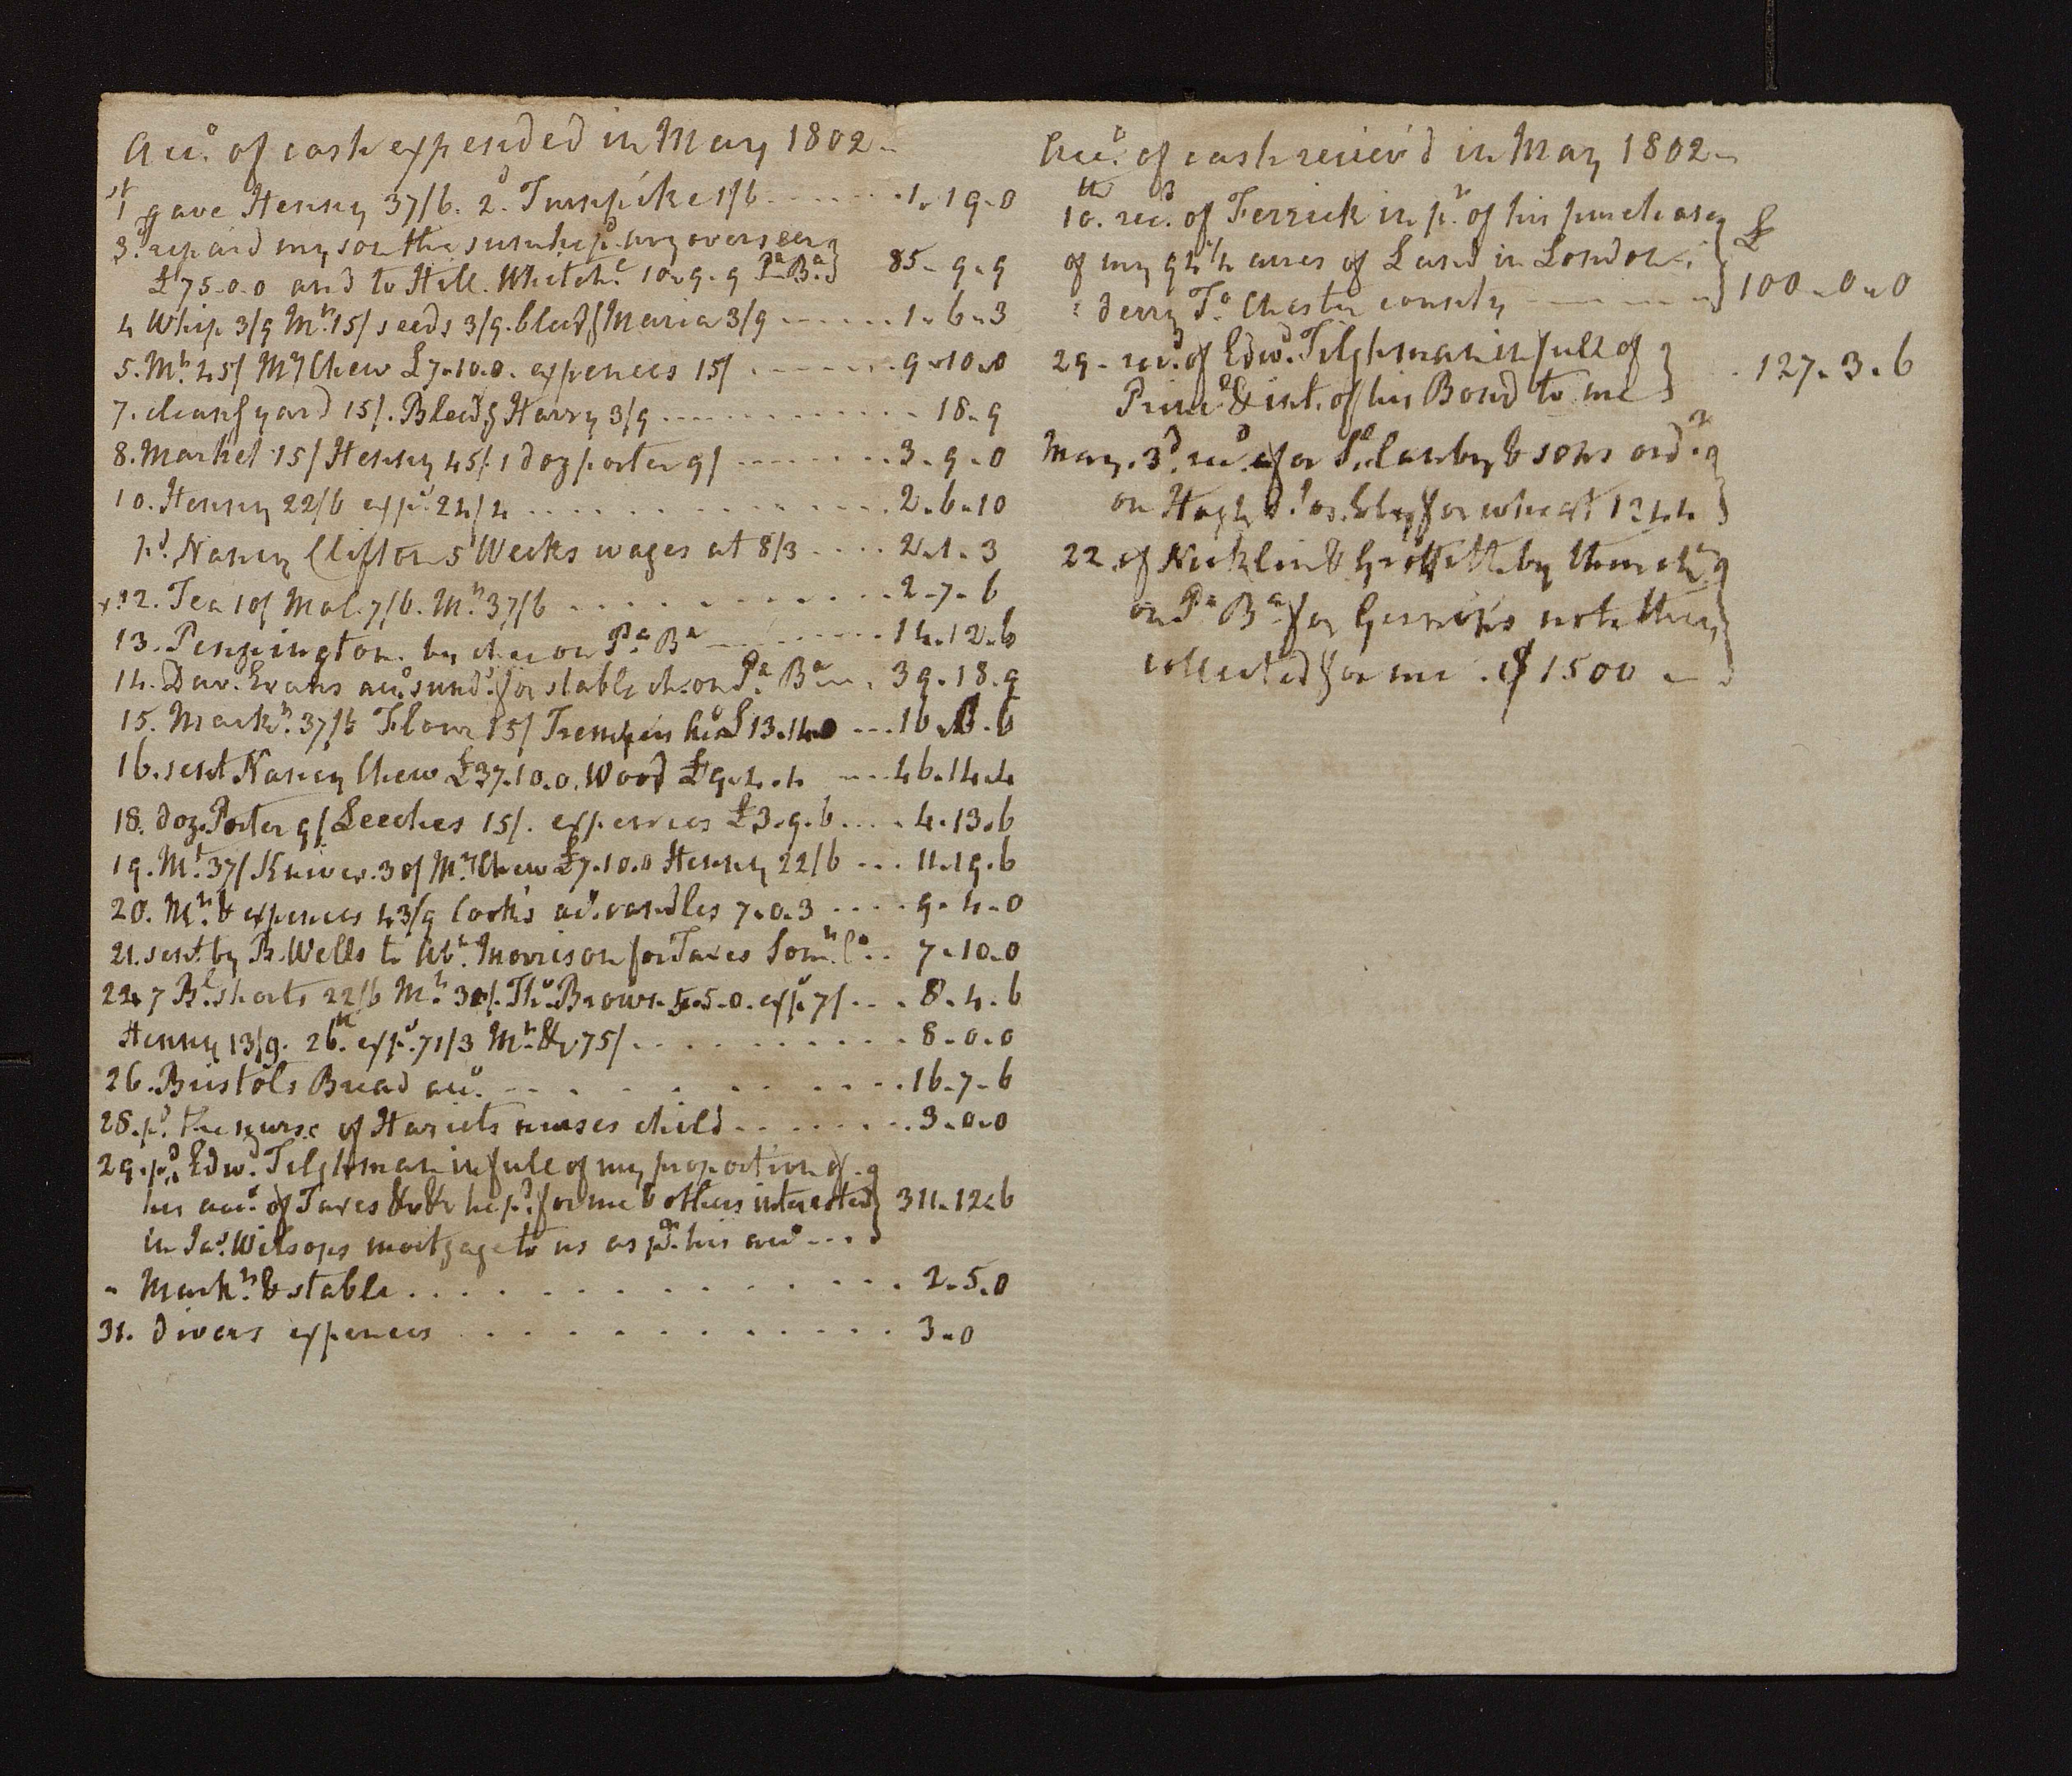 Acco. of cash expended in May 1802
1st gave Henny 37/6. 2d. Turnpike 1/6 1. 19. 0
3d. repaid my son the sum he pd. my overseer
£75.0.0 and to Hill. Whitche. 10.9.9 Pa. Ba. 85. 9. 9
4 Whip 3/9 Mt. 15/ seeds 3/9. bleedg Maria 3/9 1. 6. 3
5. Mt. 45/ Mrs Chew £7.10.0. expences 15/ 9. 10. 0
7. cleang yard 15/. Bleedg Harry 3/9 18. 9
8. Market 15/ Henny 45/. 1 doz porter 9/ 3. 9. 0
10. Henny 22/6 exps. 24/4 2. 6. 10
pd. Nancy Clifton 5 Weeks wages at 8/3 2. 1. 3
12. Tea 1 of Mol. 7/6. Mt. 37/6 2. 7. 6
13. Pennington. by che on Pa. Ba 14. 12. 6
14. Dav. Evans acco. sunds. for stable ch. on Pa. Ba 39. 18. 9
15. Markt. 37/6 Flour 15/ acco £13.14.0 16. 6
16. sent Nancy Chew £37.10.0. Wood £9.4.4 46. 14. 4
18. doz. Porter 9/ Leeches 15/. expences £3.9.6 4. 13. 6
19. Mt. 37/ Knives. 30/ Mrs. Chew £7.10.0 Henny 22/6 11. 19. 6
20. Mt. & expences 43/9 Cook's acco. candles 7.0.3 9. 4. 0
21. sent by R. Wells to Abm. Morrison for Taxes Somt. Co. 7. 10. 0
22. 7 Bl. shorts 22/6 Mt. 30/. Tho. Brown 5.0. exps. 7/ 8. 4. 6
Henny 13/9. 26th. exps. 71/3 Mt. &c 75/ 8. 0. 0
26. Bristols Bread acco. 16. 7. 6
28. pd. the nurse of Hariets nurses child 3. 0. 0
29. pd. Edwd. Tilghman in full of my proportion of
his acco. of Taxes &c &c he pd. for me & others interested 311. 12. 6
in Jas. Wilsons mortgage to us as pr. his acco
" Markt. & stable 2. 5. 0
31. divers expences 3. 0
Acco. of cash receiev'd in May 1802
10th. recd. of Ferrick in pt. of his purchase £
of my 94 1/4 acres of Land in London
: derry To. Chester county 100. 0. 0
29. recd. of Edwd. Tilghman in full of
Princl & int. of his Bond to me 127. 3. 6
May. 3d. recd. for & sons ordr.
on for wheat 1244
22. of Nicklin & Griffith by their che
on Pa Ba for note they
collected for me. $1500